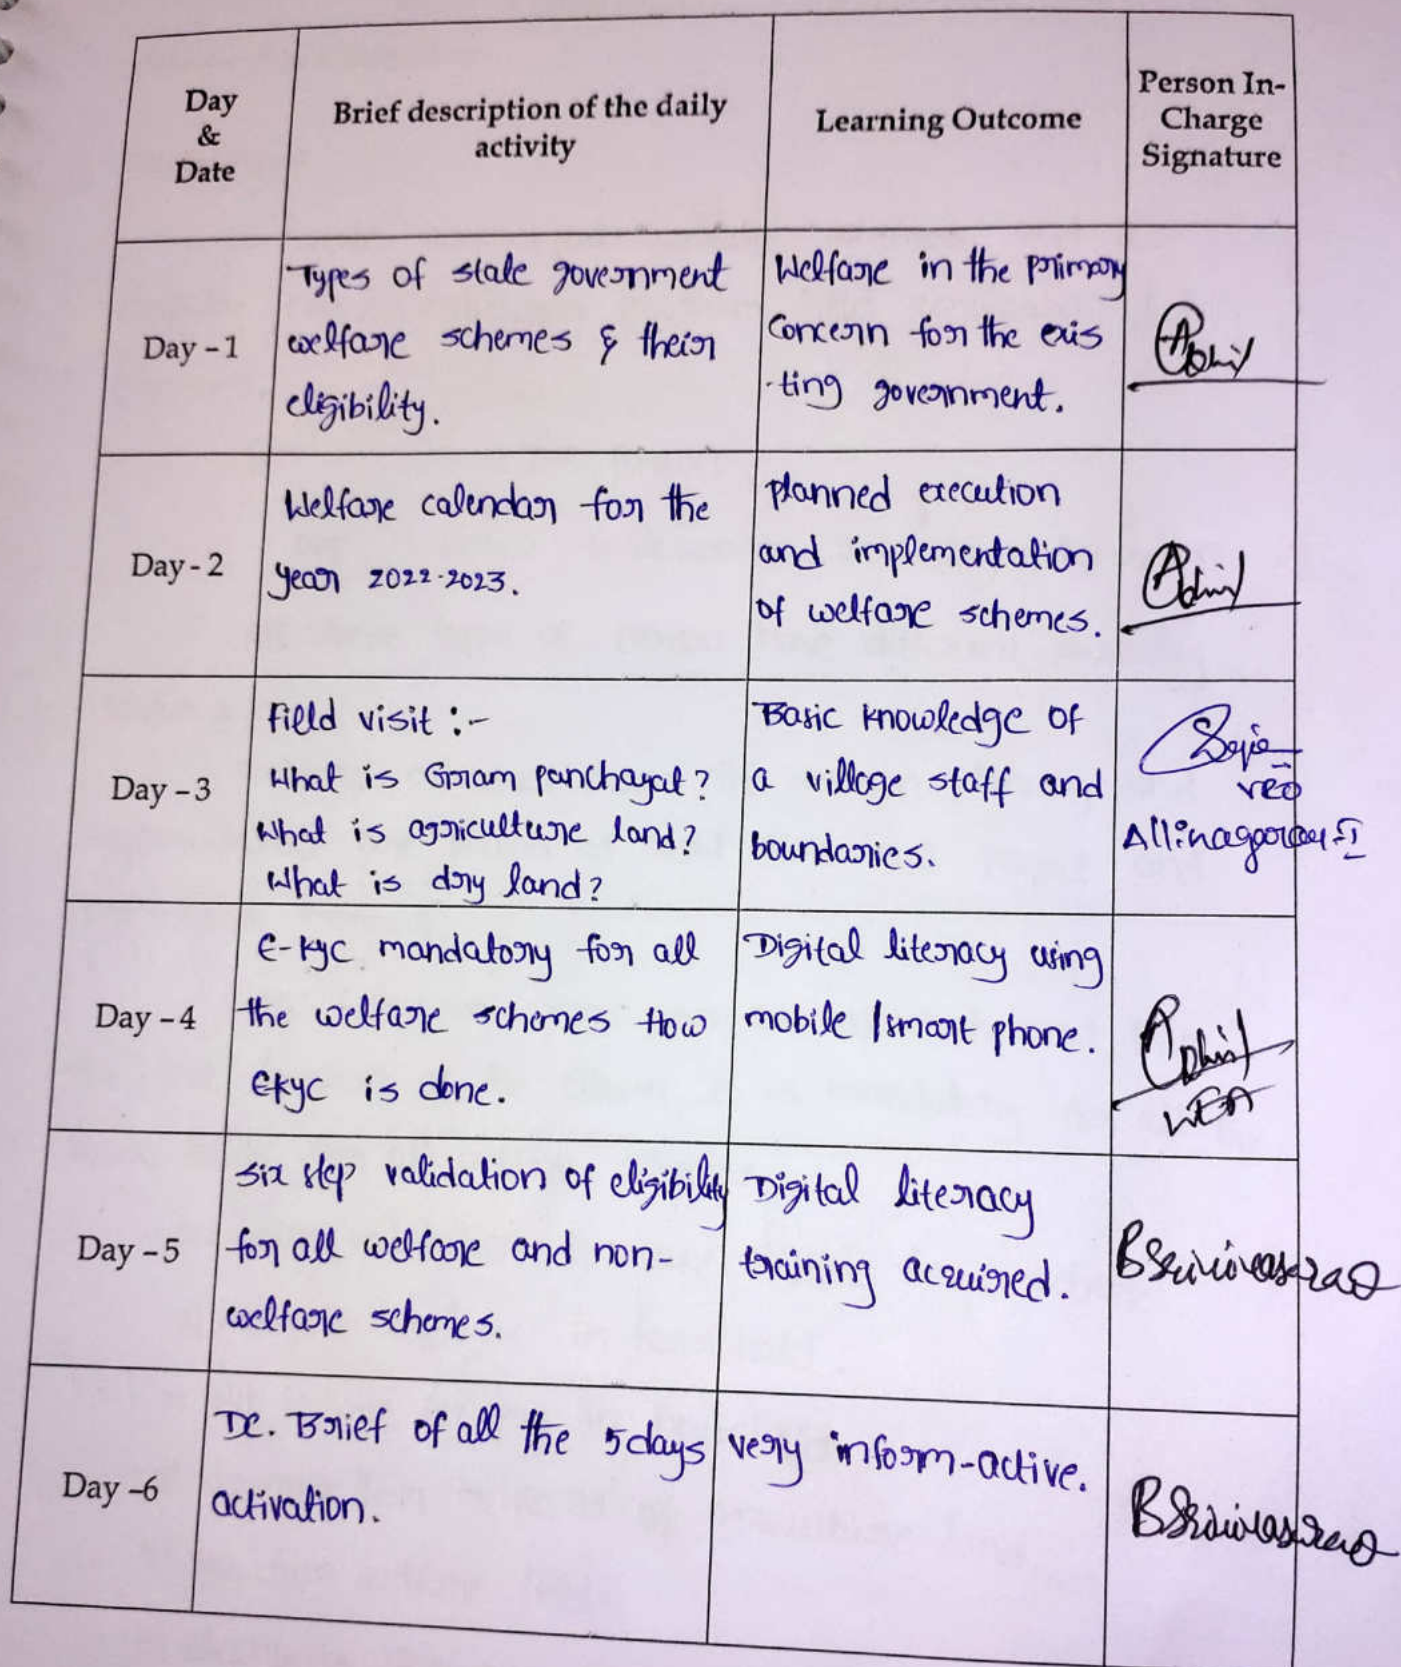 Day
&
Date
Brief description of the daily
activity
Learning Outcome
Person In-
Charge
Signature
Day - 1
Types of state government
welfare schemes & their
eligibility.
Welfare in the primary
concern for the exis
-ting government.
Day - 2
Welfare calendar for the
year 2022-2023.
planned execution
and implementation
of welfare schemes.
Day - 3
Field visit :-
What is Gram panchayat?
What is agriculture land?
What is dry land?
Basic knowledge of
a village staff and
boundaries.
Day - 4
E-kyc mandatory for all
the welfare schemes How
Ekyc is done.
Digital literacy using
mobile /smart phone.
WEA
Day - 5
Six step validation of eligibility
for all welfare and non-
welfare schemes.
Digital literacy
training acquired.
BSrinivasarao
Day -6
De. Brief of all the 5days
activation.
very inform-active.
BSrinivasarao